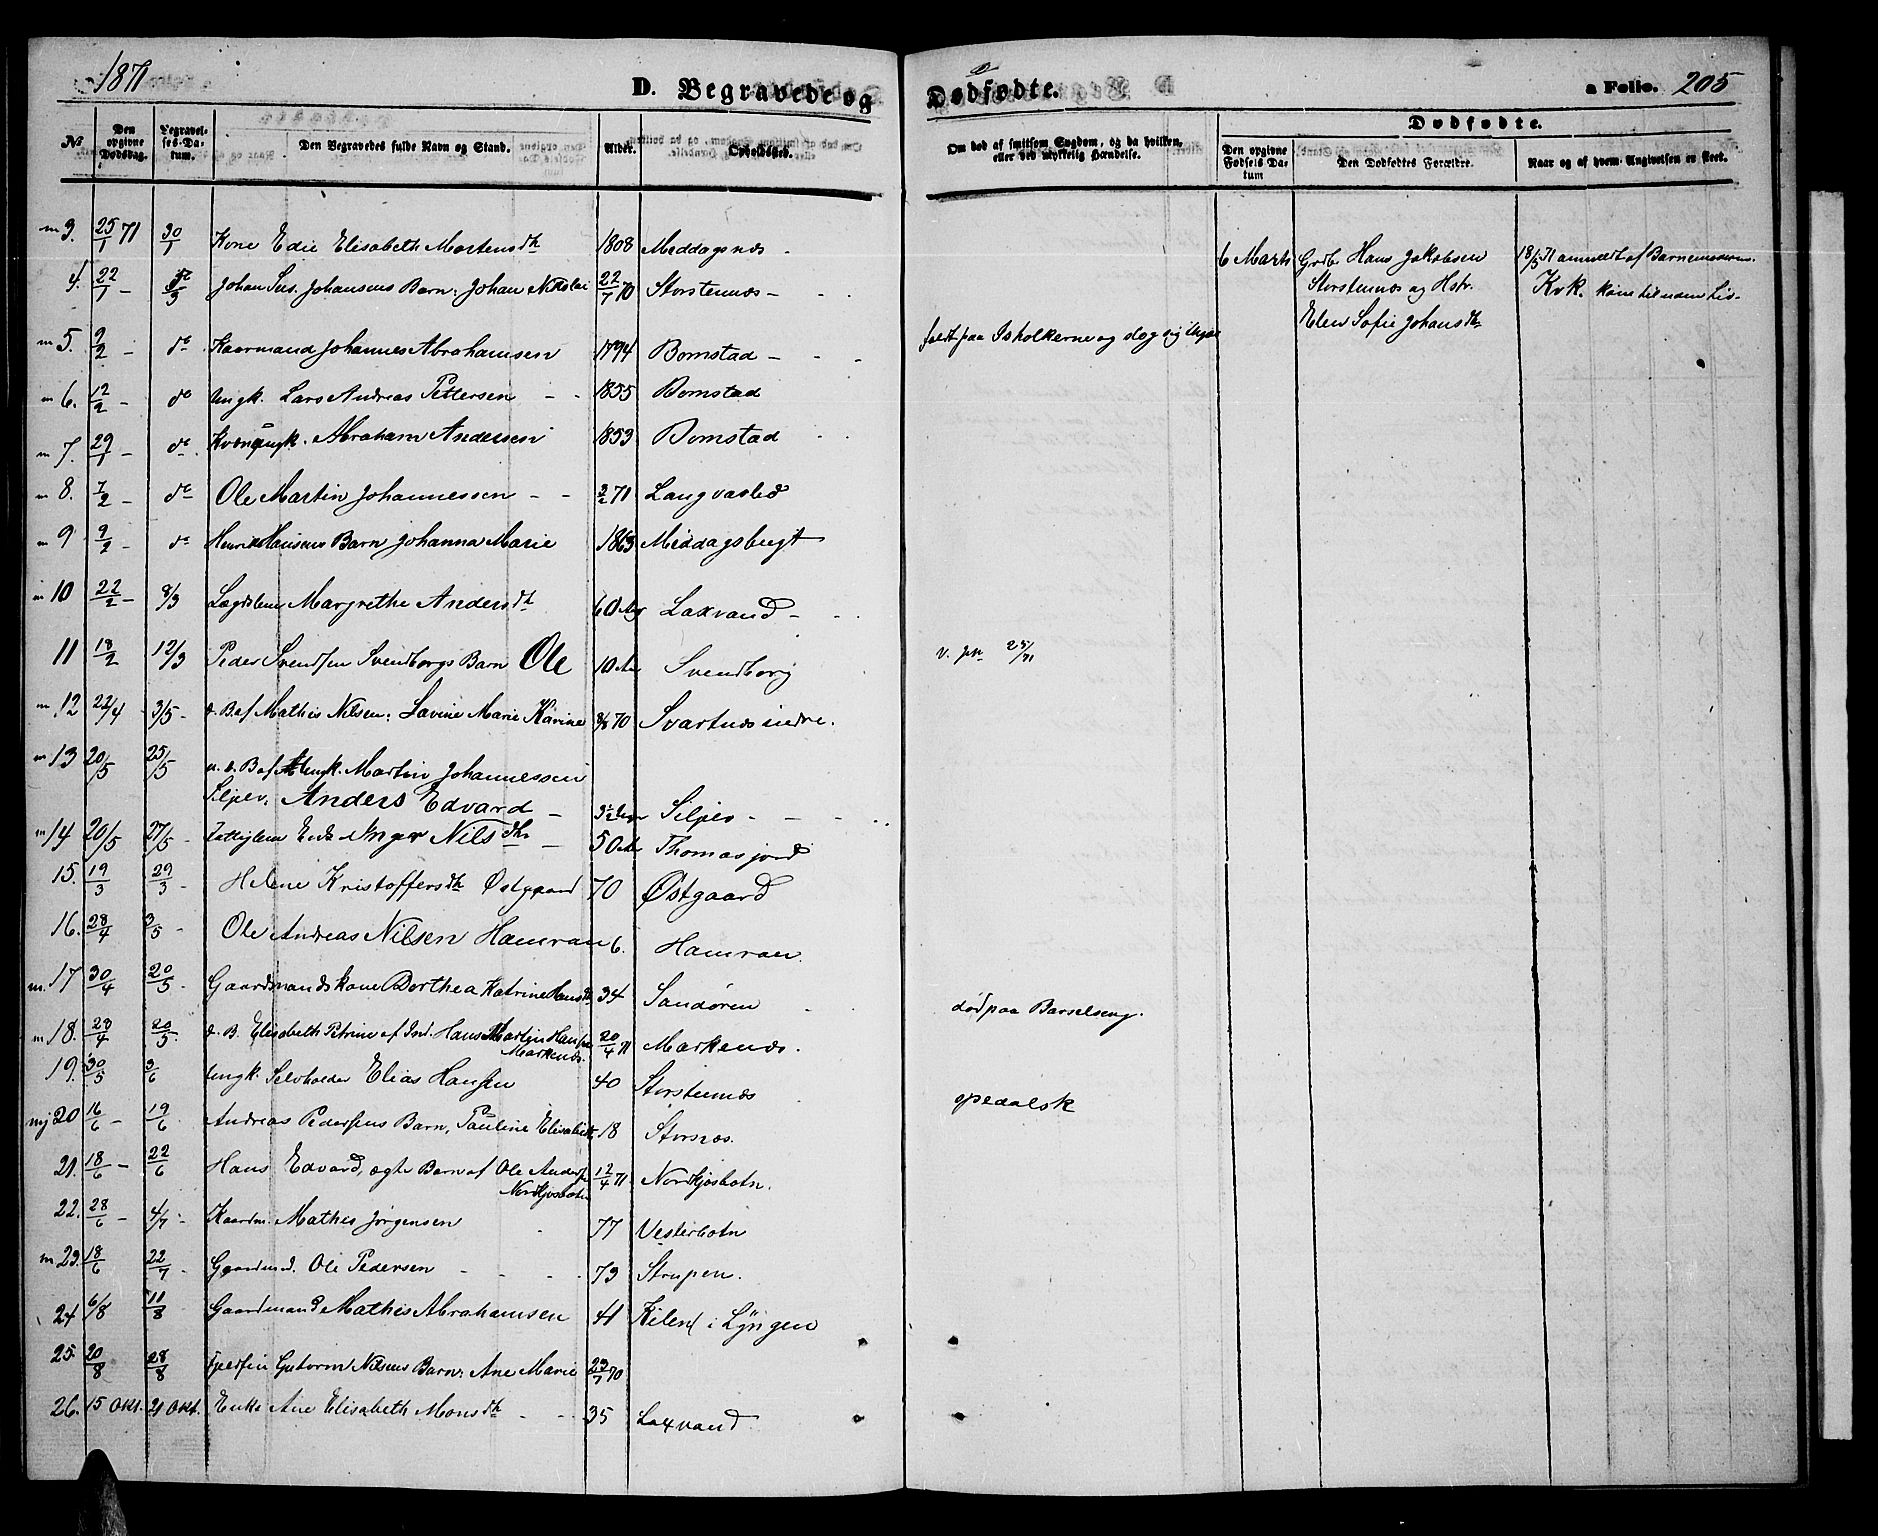 1871 D. Begravede og Dødfødte. a Folio. 205
Nr. Den opgivne Dødsdag. Begravelses-Datum. Den Begravedes fulde Navn og Stand. Alder. Opholdssted. Om død af smitsom Sygdom, og da hvilken, eller ved ulykkelig Hændelse. Dødfødte. Den opgivne Fødsels Datum Den Dødfødtes Forældre. Naar og af hvem Angivelsen er skeet.
m 3. 25/1 71 30/1 Kone Edie Elisabeth Mortensdtr 1808 Meddagsnæs 6 Marts Grdb. Hans Jakobsen 18/5 71 anmeldt af
Storstennæs og Hstr. Kvk. kom til uden Liv.
Elen Sofie Johansdtr
4. 22/1 - Johan Johansens Barn: Johan Nikolai 22/7 70 Storstennæs -
m 5. 9/2 - do Kaarmand Johannes Abrahamsen 1794 Bomstad - paa og slog sig
m 6. 12/2 - do Ungk. Lars Andreas Pettersen 1855 Bomstad
m 7. 29/1 - do Abraham Andersen 1853 Bomstad
m 8. 7/2 - do Ole Martin Johannessen 71 Langvaslid
m 9 9/2 - do Henrik Hansens Barn Johanna Marie 1863 Middagsbugt
m 10 22/2 - 8/3 Lægdslem Margrethe Andersdtr 60 Aar Laxvand -
11 18/2 12/3 Peder Svendsen Svendborgs Barn Ole 10 Aar Svendborg
m 12 22/4 3/5 - d. B. af Mathis Nilsen: Lavine Marie Karine 70 Svartnæs indre.
m 13 20/5 25/5 u. d. B af Ungk. Martin Johannessen
Siljev. Anders Edvard - Siljev -
m 14 20/5 27/5 - Fattiglem Enke Inger Nilsdtr - 50 Aar Thomasjord
15. 19/3 29/3 - Helene Kristoffersdtr Østgaard 70 Østgaard
16. 28/4 3/5 - Ole Andreas Nilsen Hamran 6. Hamran.
m. 17 30/4 20/5 - Gaardmandskone Dorthea Katrine Hansdtr 34 Sandøren død paa Barselseng.
m 18. 28/4 20/5. d. B. Elisabeth Petrine af Ind. Hans Martin Hansen 20/4 71 Markenæs.
Markenæs.
19. 30/5 3/6 Ungk. Selvholder Elias Hansen 40 Storstennæs spedalsk
20 16/6 - 19/6 Andreas Pedersens Barn, Pauline Elisabeth 18 Stornæs.
21. 18/6 - 22/6 Hans Edvard, ægte Barn af Ole Anders 12/4 71 Nordkjosbotn.
Nordkjosbotn
22. 28/6 - 4/7 - Kaarm. Mathis Jørgensen 77 Vesterbotn
m 23. 18/6 22/7 - Gaardmd. Ole Pedersen 73 Strupen.
24 6/8 11/8 Gaardmand Mathis Abrahamsen 41 Kilen i Lyngen
25. 20/8 28/8 Guttorm Nilsens Barn: Ane Marie 23/7 70
26. 15 Okt. 21 Okt. Enke Ane Elisabeth Monsdtr 35 Laxvand